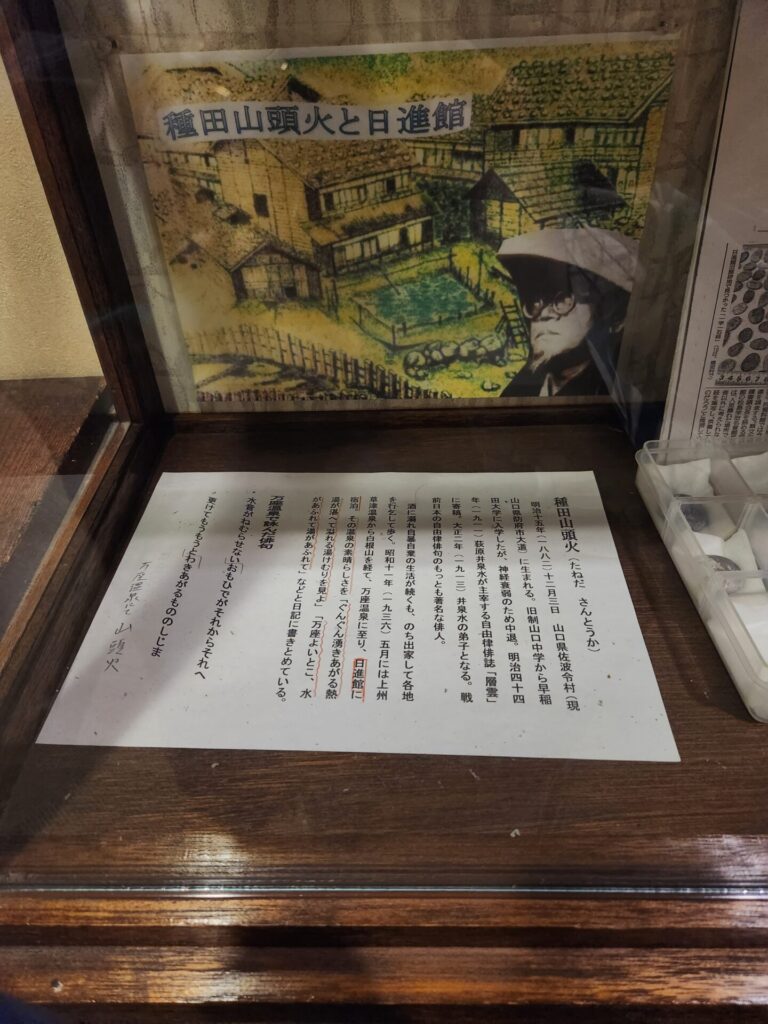 種田山頭火と日進館
種田山頭火（たねだ　さんとうか）
明治十五年（一八八二）十二月三日　山口県佐波令村（現
山口県防府市大道）に生まれる。旧制山口中学から早稲
田大学に入学したが、神経衰弱のため中退。明治四十四
年（一九一一）荻原井泉水が主宰する自由律俳誌「層雲」
に寄稿、大正二年（一九一三）井泉水の弟子となる。戦
前日本の自由律俳句のもっとも著名な俳人。
酒に溺れ自暴自棄の生活が続くも、のち出家して各地
を行乞して歩く。昭和十一年（一九三六）五月には上州
草津温泉から白根山を経て、万座温泉に至り、日進館に
宿泊、その温泉の素晴らしさを「ぐんぐん湧きあがる熱
湯が湛へて溢れる湯けむりを見よ」「万座よいとこ、水
があふれて湯があふれて」などと日記に書きとめている。
万座温泉で詠んだ俳句
・水音がねむらせないおもひでがそれからそれへ
・更けてもうもうとわきあがるもののしにま
万座温泉にて 山頭火
3 4 6 6 7 6